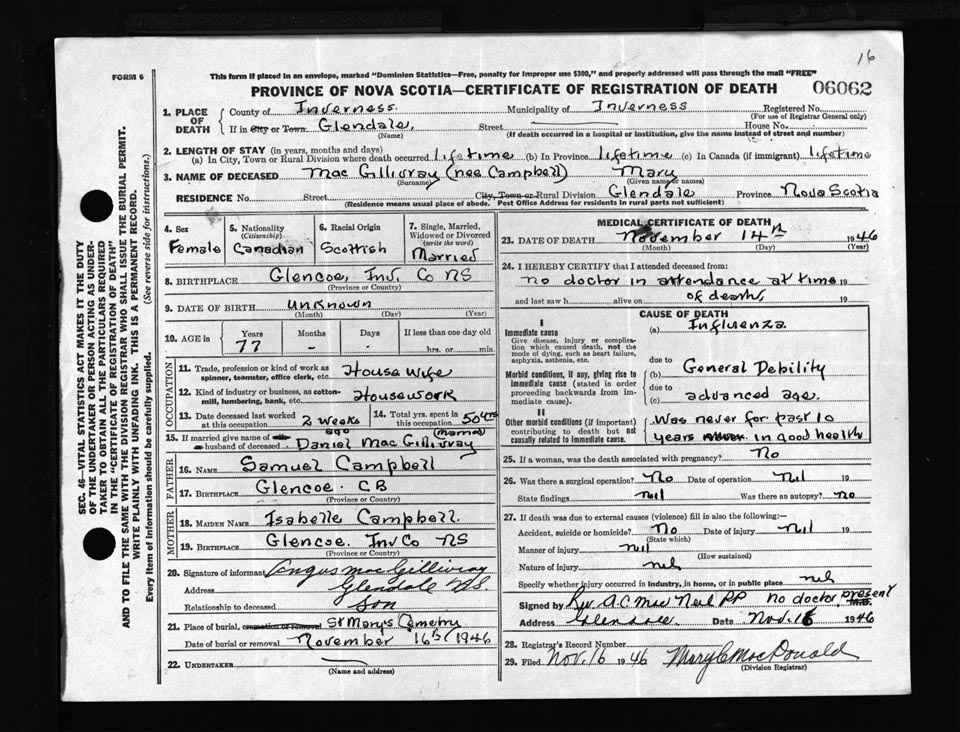 16
FORM 6
This form if placed in an envelope, marked "Dominion Statistics—Free, penalty for improper use $300," and properly addressed will pass through the mail "FREE"
PROVINCE OF NOVA SCOTIA—CERTIFICATE OF REGISTRATION OF DEATH 06062
1. PLACE OF DEATH
County of Inverness. Municipality of Inverness Registered No.
(For use of Registrar General only)
If in City or Town Glendale, Street House No.
(Name) (If death occurred in a hospital or institution, give the name instead of street and number)
2. LENGTH OF STAY (in years, months and days)
(a) In City, Town or Rural Division where death occurred lifetime (b) In Province lifetime (c) In Canada (if immigrant) lifetime
3. NAME OF DECEASED Mac Gillivray (nee Campbell) Mary
(Surname) (Given name or names)
RESIDENCE No. Street City, Town or Rural Division Glendale Province Nova Scotia
(Residence means usual place of abode. Post Office Address for residents in rural parts not sufficient)
4. Sex Female
5. Nationality (Citizenship) Canadian
6. Racial Origin Scottish
7. Single, Married, Widowed or Divorced (write the word) Married
8. BIRTHPLACE Glencoe, Inv. Co NS
(Province or Country)
9. DATE OF BIRTH unknown
(Month) (Day) (Year)
10. AGE in Years Months Days If less than one day old
77 - - hrs. or min.
OCCUPATION
11. Trade, profession or kind of work as spinner, teamster, office clerk, etc. House wife
12. Kind of industry or business, as cotton-mill, lumbering, bank, etc. Housework
13. Date deceased last worked at this occupation 2 weeks ago
14. Total yrs. spent in this occupation 50 yrs (Married)
15. If married give name of husband of deceased Daniel Mac Gillivray
FATHER
16. NAME Samuel Campbell
17. BIRTHPLACE Glencoe. CB
(Province or Country)
MOTHER
18. MAIDEN NAME Isabelle Campbell.
19. BIRTHPLACE Glencoe. Inv Co NS
(Province or Country)
20. Signature of informant Angus MacGillivray
Address Glendale N.S.
Relationship to deceased Son
21. Place of burial, cremation or removal St Mary's Cemetry
Date of burial or removal November 16th 1946
22. UNDERTAKER
(Name and address)
MEDICAL CERTIFICATE OF DEATH
23. DATE OF DEATH November 14th 1946
(Month) (Day) (Year)
24. I HEREBY CERTIFY that I attended deceased from:
no doctor in attendance at time 19
and last saw h alive on of death, 19
CAUSE OF DEATH
I
Immediate cause
Give disease, injury or complication which caused death, not the mode of dying, such as heart failure, asphyxia, asthenia, etc.
(a) Influenza
due to
Morbid conditions, if any, giving rise to immediate cause (stated in order proceeding backwards from immediate cause).
(b) General Debility
due to
(c) advanced age.
II
Other morbid conditions (if important) contributing to death but not causally related to immediate cause.
Was never for past 10
years never in good health
25. If a woman, was the death associated with pregnancy? No
26. Was there a surgical operation? No Date of operation nil 19
State findings nil Was there an autopsy? no
27. If death was due to external causes (violence) fill in also the following:—
Accident, suicide or homicide? No Date of injury nil 19
(State which)
Manner of injury nil
(How sustained)
Nature of injury nil
Specify whether injury occurred in industry, in home, or in public place nil
Signed by Rev. A.C. Mac Neil PP no doctor present M.D.
Address Glendale. Date Nov. 16 1946
28. Registrar's Record Number
29. Filed Nov. 16 1946 Mary C MacDonald
(Division Registrar)
SEC. 46—VITAL STATISTICS ACT MAKES IT THE DUTY
OF THE UNDERTAKER OR PERSON ACTING AS UNDER-
TAKER TO OBTAIN ALL THE PARTICULARS REQUIRED
IN THE "CERTIFICATE OF REGISTRATION OF DEATH"
AND TO FILE THE SAME WITH THE DIVISION REGISTRAR WHO SHALL ISSUE THE BURIAL PERMIT.
WRITE PLAINLY WITH UNFADING INK. THIS IS A PERMANENT RECORD.
Every item of information should be carefully supplied. (See reverse side for instructions.)